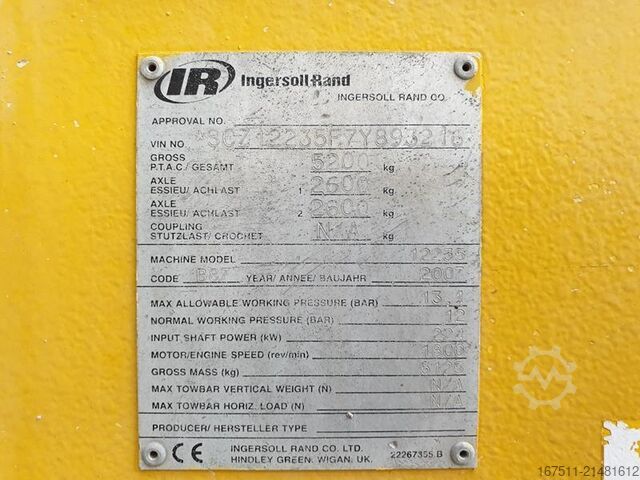 IR Ingersoll Rand
INGERSOLL RAND CO.
APPROVAL NO.
VIN NO.
GROSS 5200 kg
P.T.A.C./ GESAMT
AXLE 1 2600 kg
ESSIEU/ ACHLAST
AXLE 2 2600 kg
ESSIEU/ ACHLAST
COUPLING N/A kg
STUTZLAST/ CROCHET
MACHINE MODEL 12235
CODE YEAR/ ANNEE/ BAUJAHR 2007
MAX ALLOWABLE WORKING PRESSURE (BAR)
NORMAL WORKING PRESSURE (BAR) 12
INPUT SHAFT POWER (kW) 224
MOTOR/ENGINE SPEED (rev/min) 1800
GROSS MASS (kg)
MAX TOWBAR VERTICAL WEIGHT (N) N/A
MAX TOWBAR HORIZ. LOAD (N) N/A
PRODUCER/ HERSTELLER TYPE
CE INGERSOLL RAND CO. LTD.
HINDLEY GREEN, WIGAN, UK. 22267355.B
167511-21481612